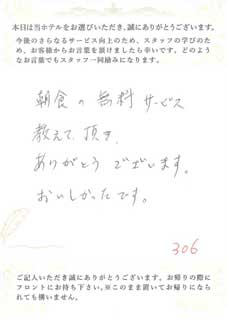 本日は当ホテルをお選びいただき、誠にありがとうございます。
今後のさらなるサービス向上のため、スタッフの学びのため、お客様からお言葉を頂けましたら幸いです。どのようなお言葉でもスタッフ一同励みになります。
朝食の無料サービス
教えて頂き、
ありがとうございます。
おいしかったです。
306
ご記入いただき誠にありがとうございます。お帰りの際に
フロントにお持ち下さい。※このまま置いてお帰りになら
れても構いません。